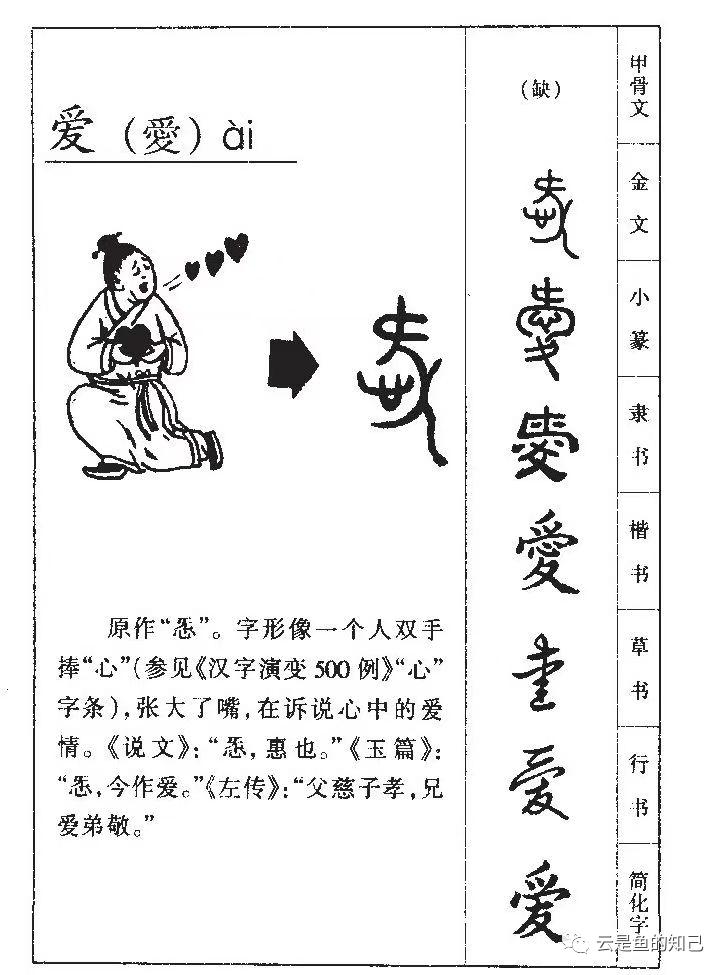 爱（愛）ài
原作“㤅”。字形像一个人双手
捧“心”（参见《汉字演变500例》“心”
字条），张大了嘴，在诉说心中的爱
情。《说文》：“㤅，惠也。”《玉篇》：
“㤅，今作爱。”《左传》：“父慈子孝，兄
爱弟敬。”
（缺）
㤅
愛
愛
愛
爱
爱
甲骨文
金文
小篆
隶书
楷书
草书
行书
简化字
云是鱼的知己